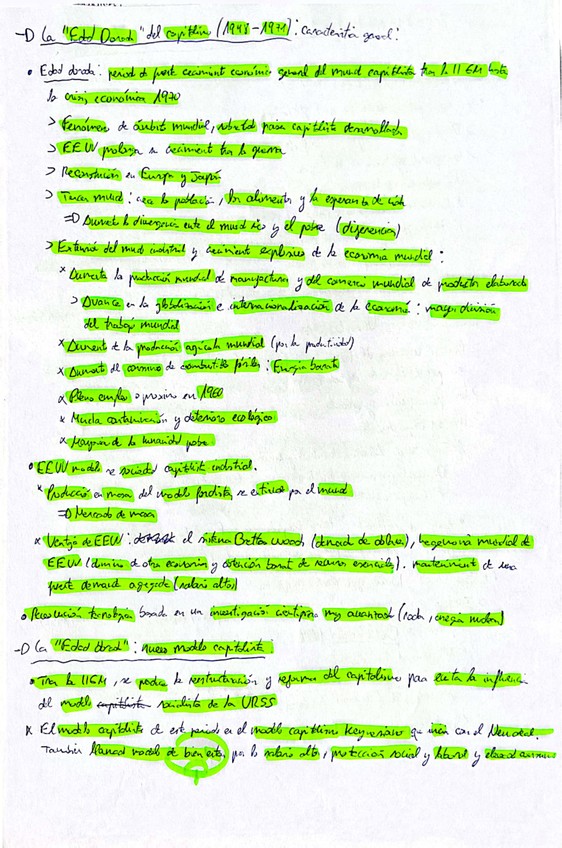 → La "Edad Dorada" del capitalismo (1948-1971): características general:
• Edad dorada: period de fuerte crecimiento económico general del mundo capitalista tras la II GM hasta
la crisis económica 1970
> Fenómeno de ámbito mundial, sobretodo países capitalistas desarrollados
> EEUU prolonga su crecimiento tras la guerra
> Reconstrucción en Europa y Japón
> Tercer mundo: crece la población, los alimentos y la esperanza de vida
⇒ Aumentó la divergencia entre el mundo rico y el pobre (diferencias)
> Extensión del mundo industrial y crecimiento explosivo de la economía mundial:
x Aumenta la producción mundial de manufacturas y del comercio mundial de productos elaborados
> Avance en la globalización e internacionalización de la economía: mayor división
del trabajo mundial
x Aumento de la producción agrícola mundial (por la productividad)
x Aumento del consumo de combustibles fósiles: Energía barata
x Pleno empleo o próximo en 1960
x Mucha contaminación y deterioro ecológico
x Mayoría de la humanidad pobre
• EEUU modelo de sociedad capitalista industrial.
x Producción en masa del modelo fordista se extiende por el mundo
⇒ Mercado de masa
x Ventaja de EEUU: el sistema Bretton Woods (demanda de dólares), hegemonía mundial de
EEUU (dominio de otras economías y obtención barata de recursos esenciales), mantenimiento de una
fuerte demanda agregada (salarios altos)
• Revolución tecnológica basada en una investigación científica muy avanzada (sonda, energía nuclear)
→ La "Edad dorada": nuevo modelo capitalista:
• Tras la IIGM, se produce la reestructuración y reforma del capitalismo para evitar la influencia
del modelo socialista de la URSS
x El modelo capitalista de este periodo es el modelo capitalismo Keynesiano que inicia con el New deal.
También llamado modelo de bienestar, por los salarios altos, protección social y laboral y elevado consumo